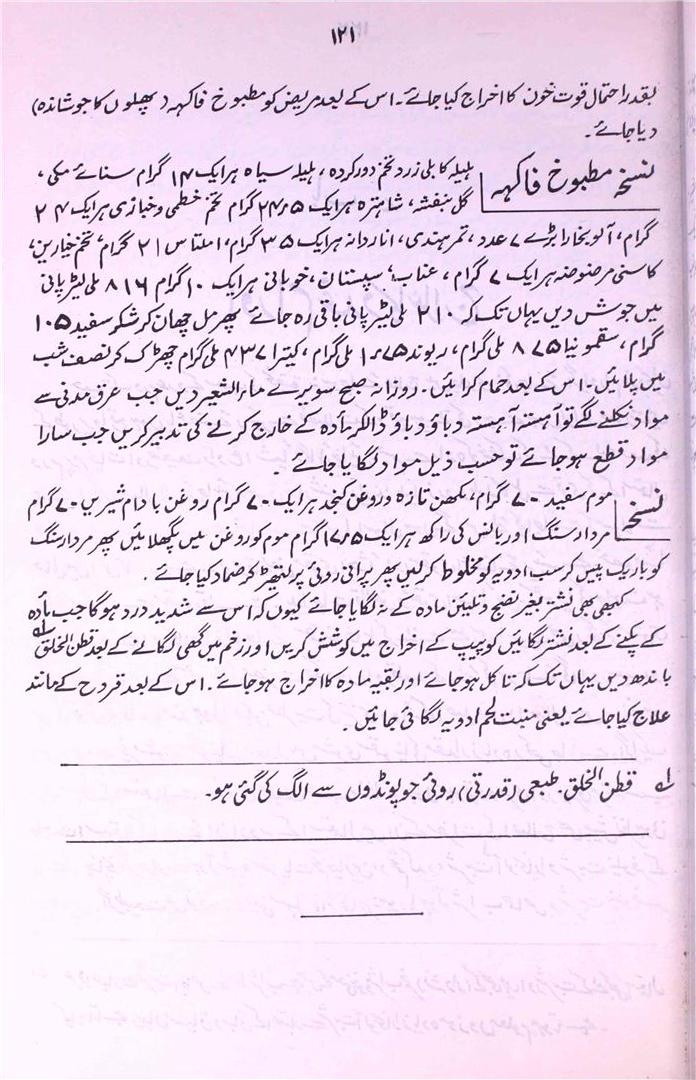 ۱۲۱
بقدر احتمال قوت خون کا اخراج کیا جائے۔ اس کے بعد مریض کو مطبوخ فاکہہ (پھلوں کا جوشاندہ)
دیا جائے۔
نسخہ مطبوخ فاکہہ ہلیلہ کابلی زرد تخم دور کردہ، ہلیلہ سیاہ ہر ایک ۱۴ گرام سنائے مکی،
گل بنفشہ، شاہترہ ہر ایک ۲۴٫۵ گرام تخم خطمی و خبازی ہر ایک ۲۴
گرام، آلو بخارا بڑے ۷ عدد، تمر ہندی، انار دانہ ہر ایک ۳۵ گرام، املتاس ۲۱ گرام، تخم خیارین،
کاسنی مرضوضہ ہر ایک ۷ گرام، عناب، سپستان، خوبانی ہر ایک ۱۰ گرام ۸۱۶ ملی لیٹر پانی
میں جوش دیں یہاں تک کہ ۲۱۰ ملی لیٹر پانی باقی رہ جائے پھر مل چھان کر شکر سفید ۱۰۵
گرام، سقمونیا ۸۷۵ ملی گرام، ریوند ۱٫۷۵ ملی گرام، کتیرا ۴۳۷ ملی گرام چھڑک کر نصف شب
میں پلائیں۔ اس کے بعد حمام کرائیں۔ روزانہ صبح سویرے ماء الشعیر دیں جب عرق مدنی سے
مواد نکلنے لگے تو آہستہ آہستہ دباؤ دباؤ ڈالکر مادہ کے خارج کرنے کی تدبیر کریں جب سارا
مواد قطع ہو جائے تو حسب ذیل مواد لگایا جائے۔
نسخہ موم سفید ۷۰ گرام، مکھن تازہ و روغن کنجد ہر ایک ۷۰ گرام روغن بادام شیریں ۷۰ گرام
مردار سنگ اور بانس کی راکھ ہر ایک ۱۷٫۵ گرام موم کو روغن میں پگھلائیں پھر مردار سنگ
کو باریک پیس کر سب ادویہ کو مخلوط کرلیں پھر پرانی روئی پر لتھیڑ کر ضماد کیا جائے۔
کبھی بھی نشتر بغیر نضج و تلیین مادہ کے نہ لگایا جائے کیوں کہ اس سے شدید درد ہوگا جب مادہ
کے پکنے کے بعد نشتر لگائیں کو پیپ کے اخراج میں کوشش کریں اور زخم میں گھی لگانے کے بعد قطن الخلق لہ
باندھ دیں یہاں تک کہ تاکل ہو جائے اور بقیہ مادہ کا اخراج ہو جائے۔ اس کے بعد قروح کے مانند
علاج کیا جائے یعنی منبت لحم ادویہ لگائی جائیں۔
لہ قطن الخلق۔ طبعی (قدرتی) روئی جو پونڈوں سے الگ کی گئی ہو۔